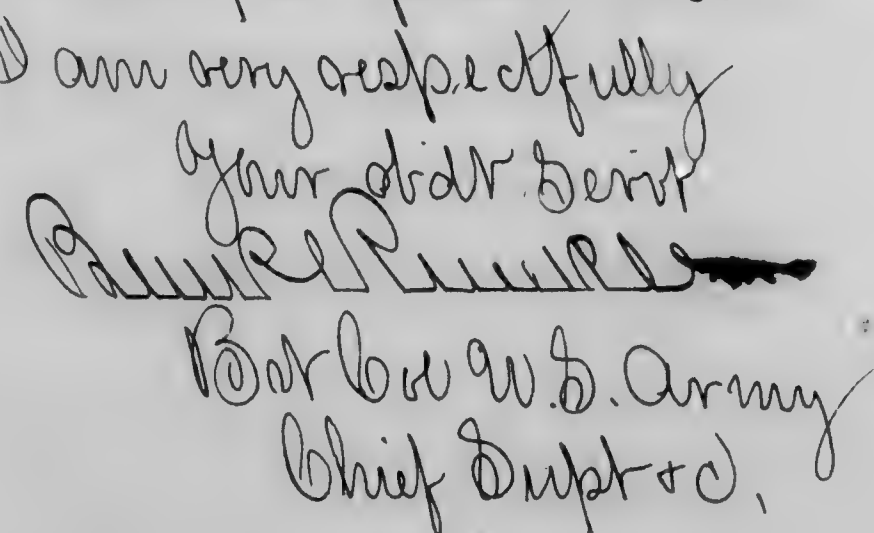 I am very respectfully
your obdt. Servt
Ben P Runkle
Bvt Col U.S. Army
Chief Supt &c,